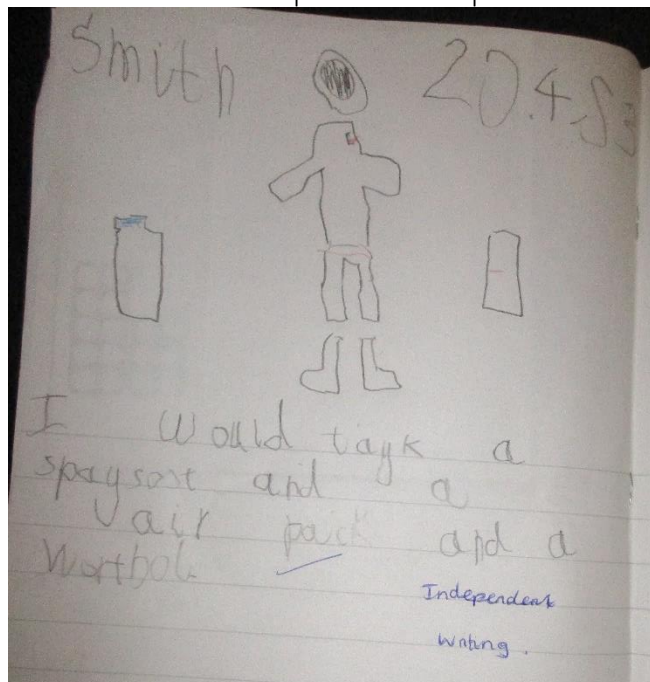 Smith 20.4.
I would tayk a
spaysort and a
air pack and a
Wortbol
Independent
Writing.